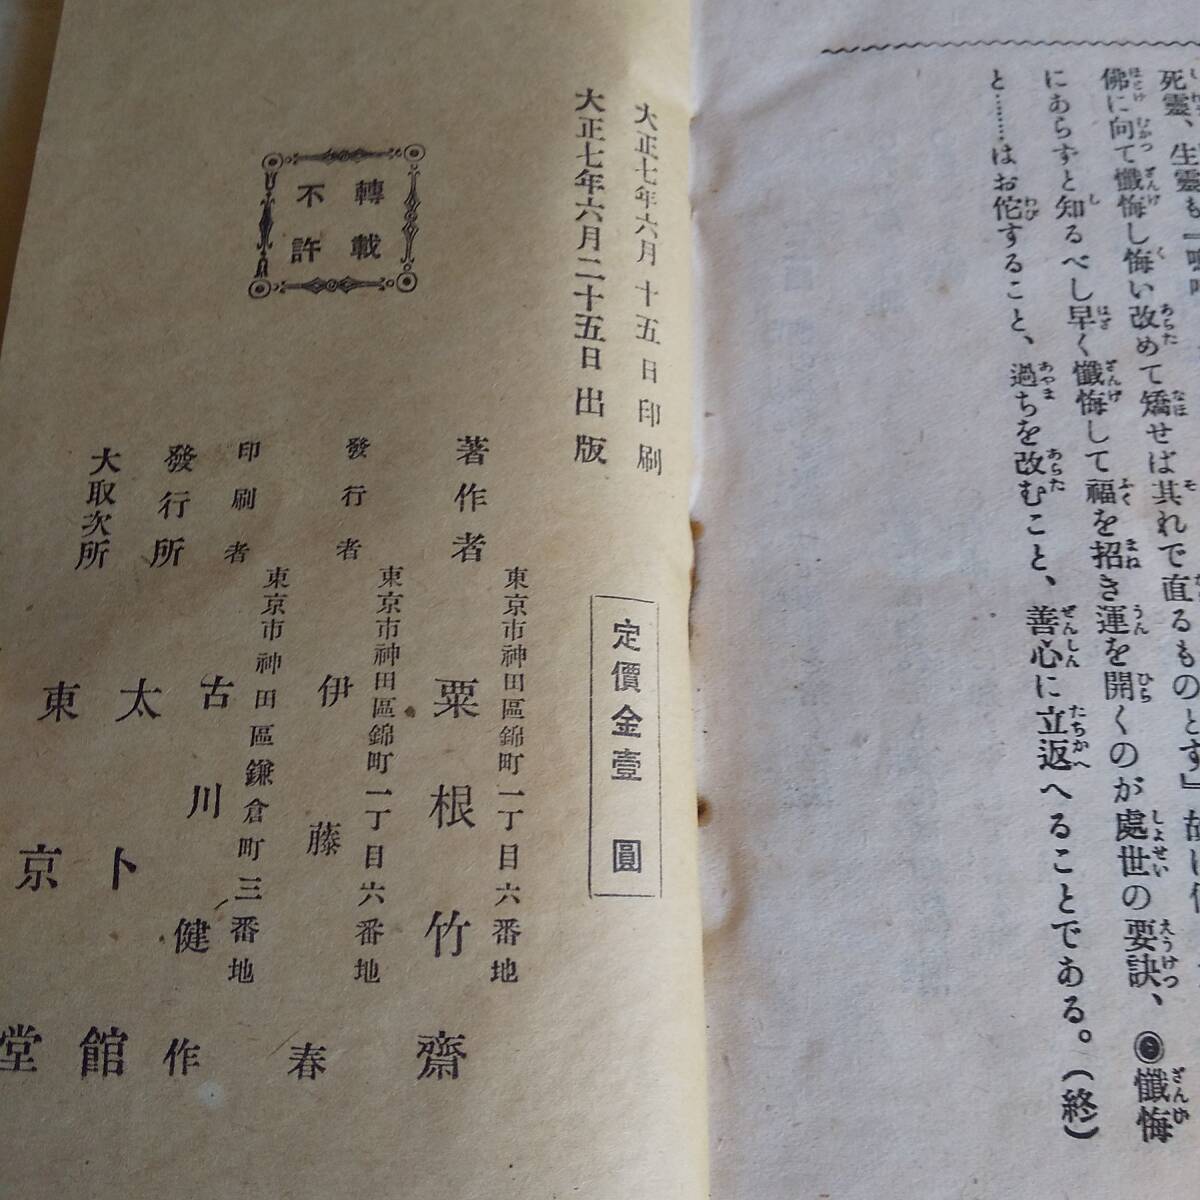 死靈、生靈も『嗚呼
佛に向て懺悔し悔い改めて矯せば其れで直るものとす』故に
にあらずと知るべし早く懺悔して福を招き運を開くのが處世の要訣、◉懺悔
と………はお佗すること、過ちを改むこと、善心に立返へることである。(終)
大正七年六月十五日印刷
大正七年六月二十五日出版
轉載
不許
定價金壹圓
東京市神田區錦町一丁目六番地
著作者 粟根竹齋
東京市神田區錦町一丁目六番地
發行者 伊藤春
東京市神田區鎌倉町三番地
印刷者 古川健作
發行所 太卜館
大取次所 東京堂